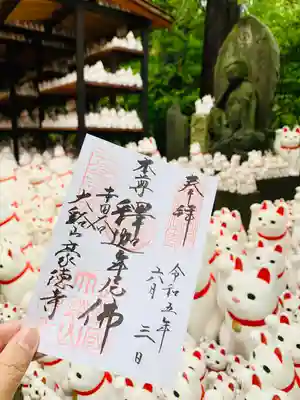 奉拝
令和五年
六月三日
本尊
釋迦牟尼佛
大谿山豪徳寺